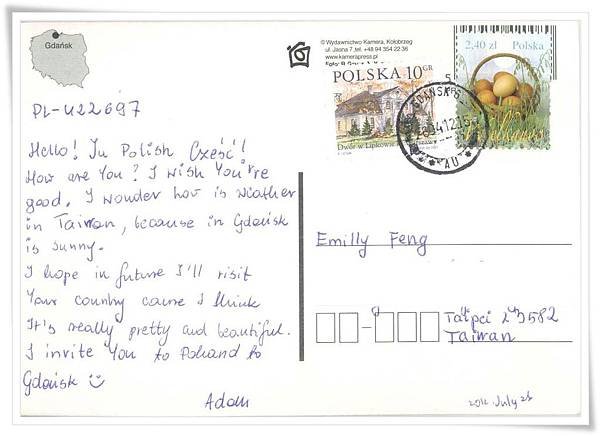 Gdańsk
© Wydawnictwo Kamera, Kołobrzeg
ul. Jasna 7, tel. +48 94 354 22 36
www.kamerapress.pl
POLSKA 10 GR
Dwór w Lipkowie
2,40 zł Polska
GDAŃSK
AU
PL-422697
Hello! In Polish Cześć!!
How are You? I wish You're
good. I wonder how is weather
in Taiwan, because in Gdańsk
is sunny.
I hope in future I'll visit
Your country cause I think
It's really pretty and beautiful.
I invite You to Poland to
Gdańsk
Adam
Emilly Feng
Taipei 23582
Taiwan
2012 July 26